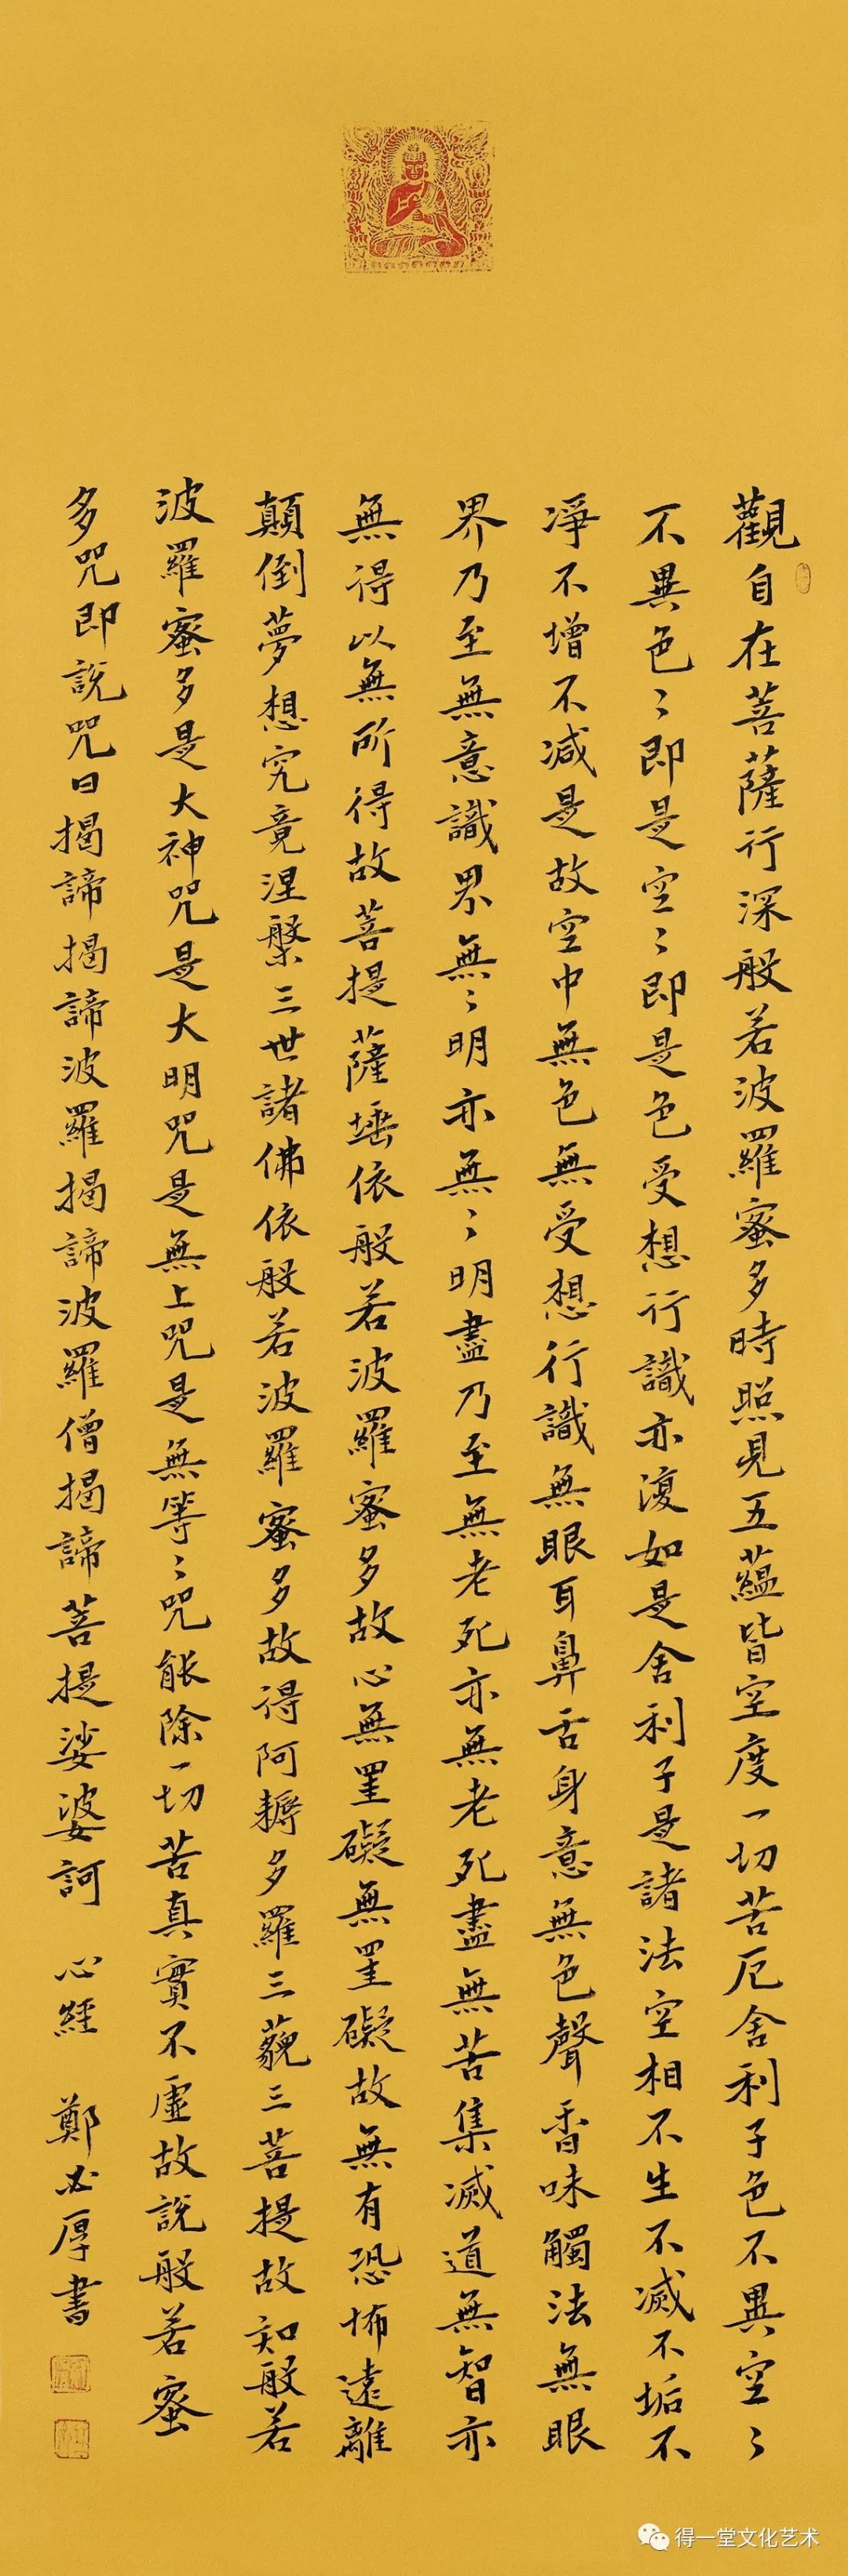 觀自在菩薩行深般若波羅蜜多時照見五蘊皆空度一切苦厄舍利子色不異空〻
不異色〻即是空〻即是色受想行識亦復如是舍利子是諸法空相不生不滅不垢不
淨不增不減是故空中無色無受想行識無眼耳鼻舌身意無色聲香味觸法無眼
界乃至無意識界無〻明亦無〻明盡乃至無老死亦無老死盡無苦集滅道無智亦
無得以無所得故菩提薩埵依般若波羅蜜多故心無罣礙無罣礙故無有恐怖遠離
顛倒夢想究竟涅槃三世諸佛依般若波羅蜜多故得阿耨多羅三藐三菩提故知般若
波羅蜜多是大神咒是大明咒是無上咒是無等〻咒能除一切苦真實不虛故說般若蜜
多咒即說咒曰揭諦揭諦波羅揭諦波羅僧揭諦菩提娑婆訶 心經 鄭必厚書
得一堂文化艺术